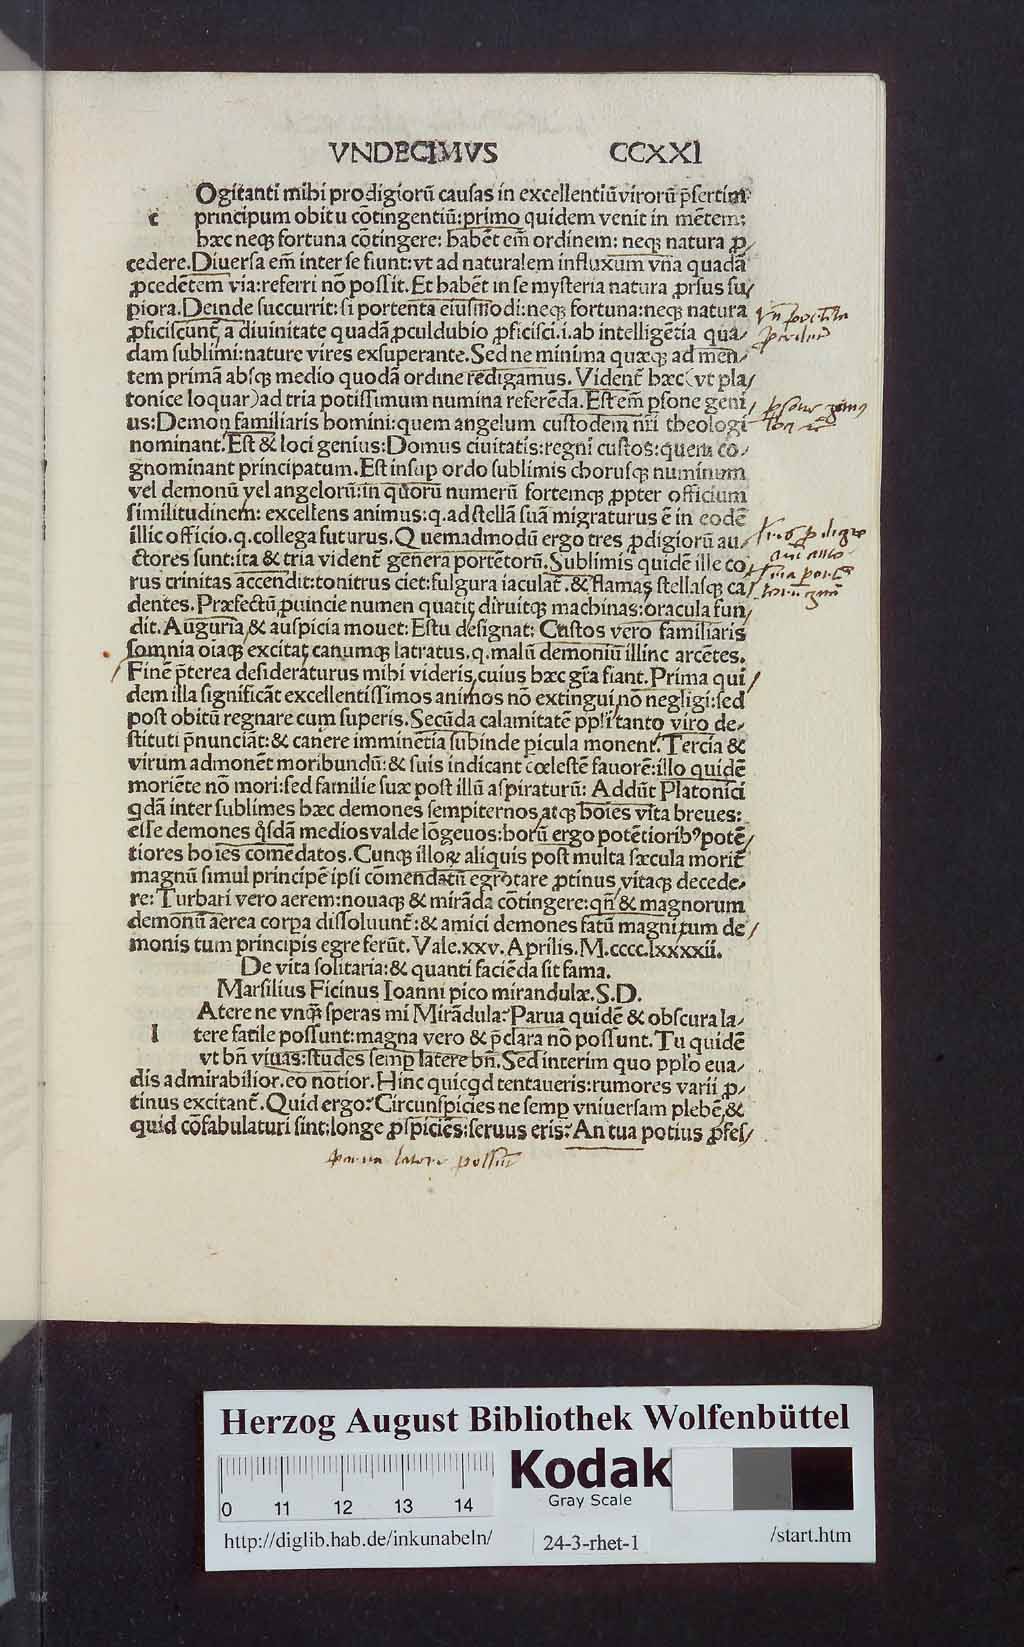 VNDECIMVS CCXXI
Ogitanti mihi prodigiorū causas in excellentiū virorū p̄sertim
c principum obitu cōtingentiū: primo quidem venit in mētem:
hæc neqꝫ fortuna cōtingere: habēt em̄ ordinem: neqꝫ natura ꝓ/
cedere. Diuersa em̄ inter se fiunt: vt ad naturalem influxum vna quadā
ꝓcedētem via: referri nō possit. Et habēt in se mysteria natura ꝓrsus su/
piora. Deinde succurrit: si portenta eiusmodi: neqꝫ fortuna: neqꝫ natura
ꝓficiscunt̄, a diuinitate quadā ꝓculdubio ꝓficisci. i. ab intelligētia qua/
dam sublimi: nature vires exsuperante. Sed ne minima quæqꝫ ad men/
tem primā absqꝫ medio quodā ordine redigamus. Vident̄ hæc (vt pla/
tonice loquar) ad tria potissimum numina referēda. Est em̄ psone geni/
us: Demon familiaris homini: quem angelum custodem nr̄i theologi
nominant. Est & loci genius: Domus ciuitatis: regni custos: quem co/
gnominant principatum. Est insup ordo sublimis chorusqꝫ numinum
vel demonū vel angelorū: in quorū numerū fortemqꝫ ꝓpter officium
similitudinem: excellens animus: q. ad stellā suā migraturus ē in eodē
illic officio. q. collega futurus. Quemadmodū ergo tres ꝓdigiorū au/
ctores sunt: ita & tria vident̄ genera portētorū. Sublimis quidē ille co/
rus crinitas accendit: tonitrus ciet: fulgura iaculat̄. & flamas stellasqꝫ ca/
dentes. Præfectū ꝓuincie numen quatit, diruitqꝫ machinas: oracula fun/
dit. Auguria & auspicia mouet: Estu designat: Custos vero familiaris
somnia oīaqꝫ excitat, canumqꝫ latratus. q. malū demoniū illinc arcētes.
Finē p̄terea desideraturus mihi videris, cuius hæc gr̄a fiant. Prima qui/
dem illa significāt excellentissimos animos nō extingui, nō negligi: sed
post obitū regnare cum superis. Secūda calamitatē ppl̄i tanto viro de/
stituti p̄nunciāt: & canere imminētia subinde picula monent. Tercia &
virum admonēt moribundū: & suis indicant cœlestē fauorē: illo quidē
moriēte nō mori: sed familie suæ post illū aspiraturū: Addūt Platonici
qdā inter sublimes hæc demones sempiternos, atqꝫ hoīes vita breues:
esse demones q̄sdā medios valde lōgeuos: horū ergo potētiorib⁹ potē/
tiores hoīes comēdatos. Cunqꝫ illoꝝ aliquis post multa sæcula morit̄
magnū simul principē ipsi cōmendatū egrotare ꝓtinus, vitaqꝫ decede/
re: Turbari vero aerem: nouaqꝫ & mirāda cōtingere: qn̄ & magnorum
demonū aerea corpa dissoluunt̄: & amici demones fatū magni tum de/
monis tum principis egre ferūt. Vale. xxv. Aprilis. M.cccc.lxxxxii.
De vita solitaria: & quanti faciēda sit fama.
Marsilius Ficinus Ioanni pico mirandulæ. S.D.
Atere ne vnq̄ speras mi Mirādula? Parua quidē & obscura la/
l tere facile possunt: magna vero & p̄clara nō possunt. Tu quidē
vt bn̄ viuas: studes semp latere bn̄. Sed interim quo pplo eua/
dis admirabilior. eo notior. Hinc quicqd tentaueris: rumores varii ꝓ/
tinus excitant̄. Quid ergo? Circunspicies ne semp vniuersam plebē, &
quid cōfabulaturi sint: longe ꝓspiciēs: seruus eris? An tua potius ꝓfes/
parua latere possūt
Herzog August Bibliothek Wolfenbüttel
0 11 12 13 14
Kodak
Gray Scale
http://diglib.hab.de/inkunabeln/
24-3-rhet-1
/start.htm